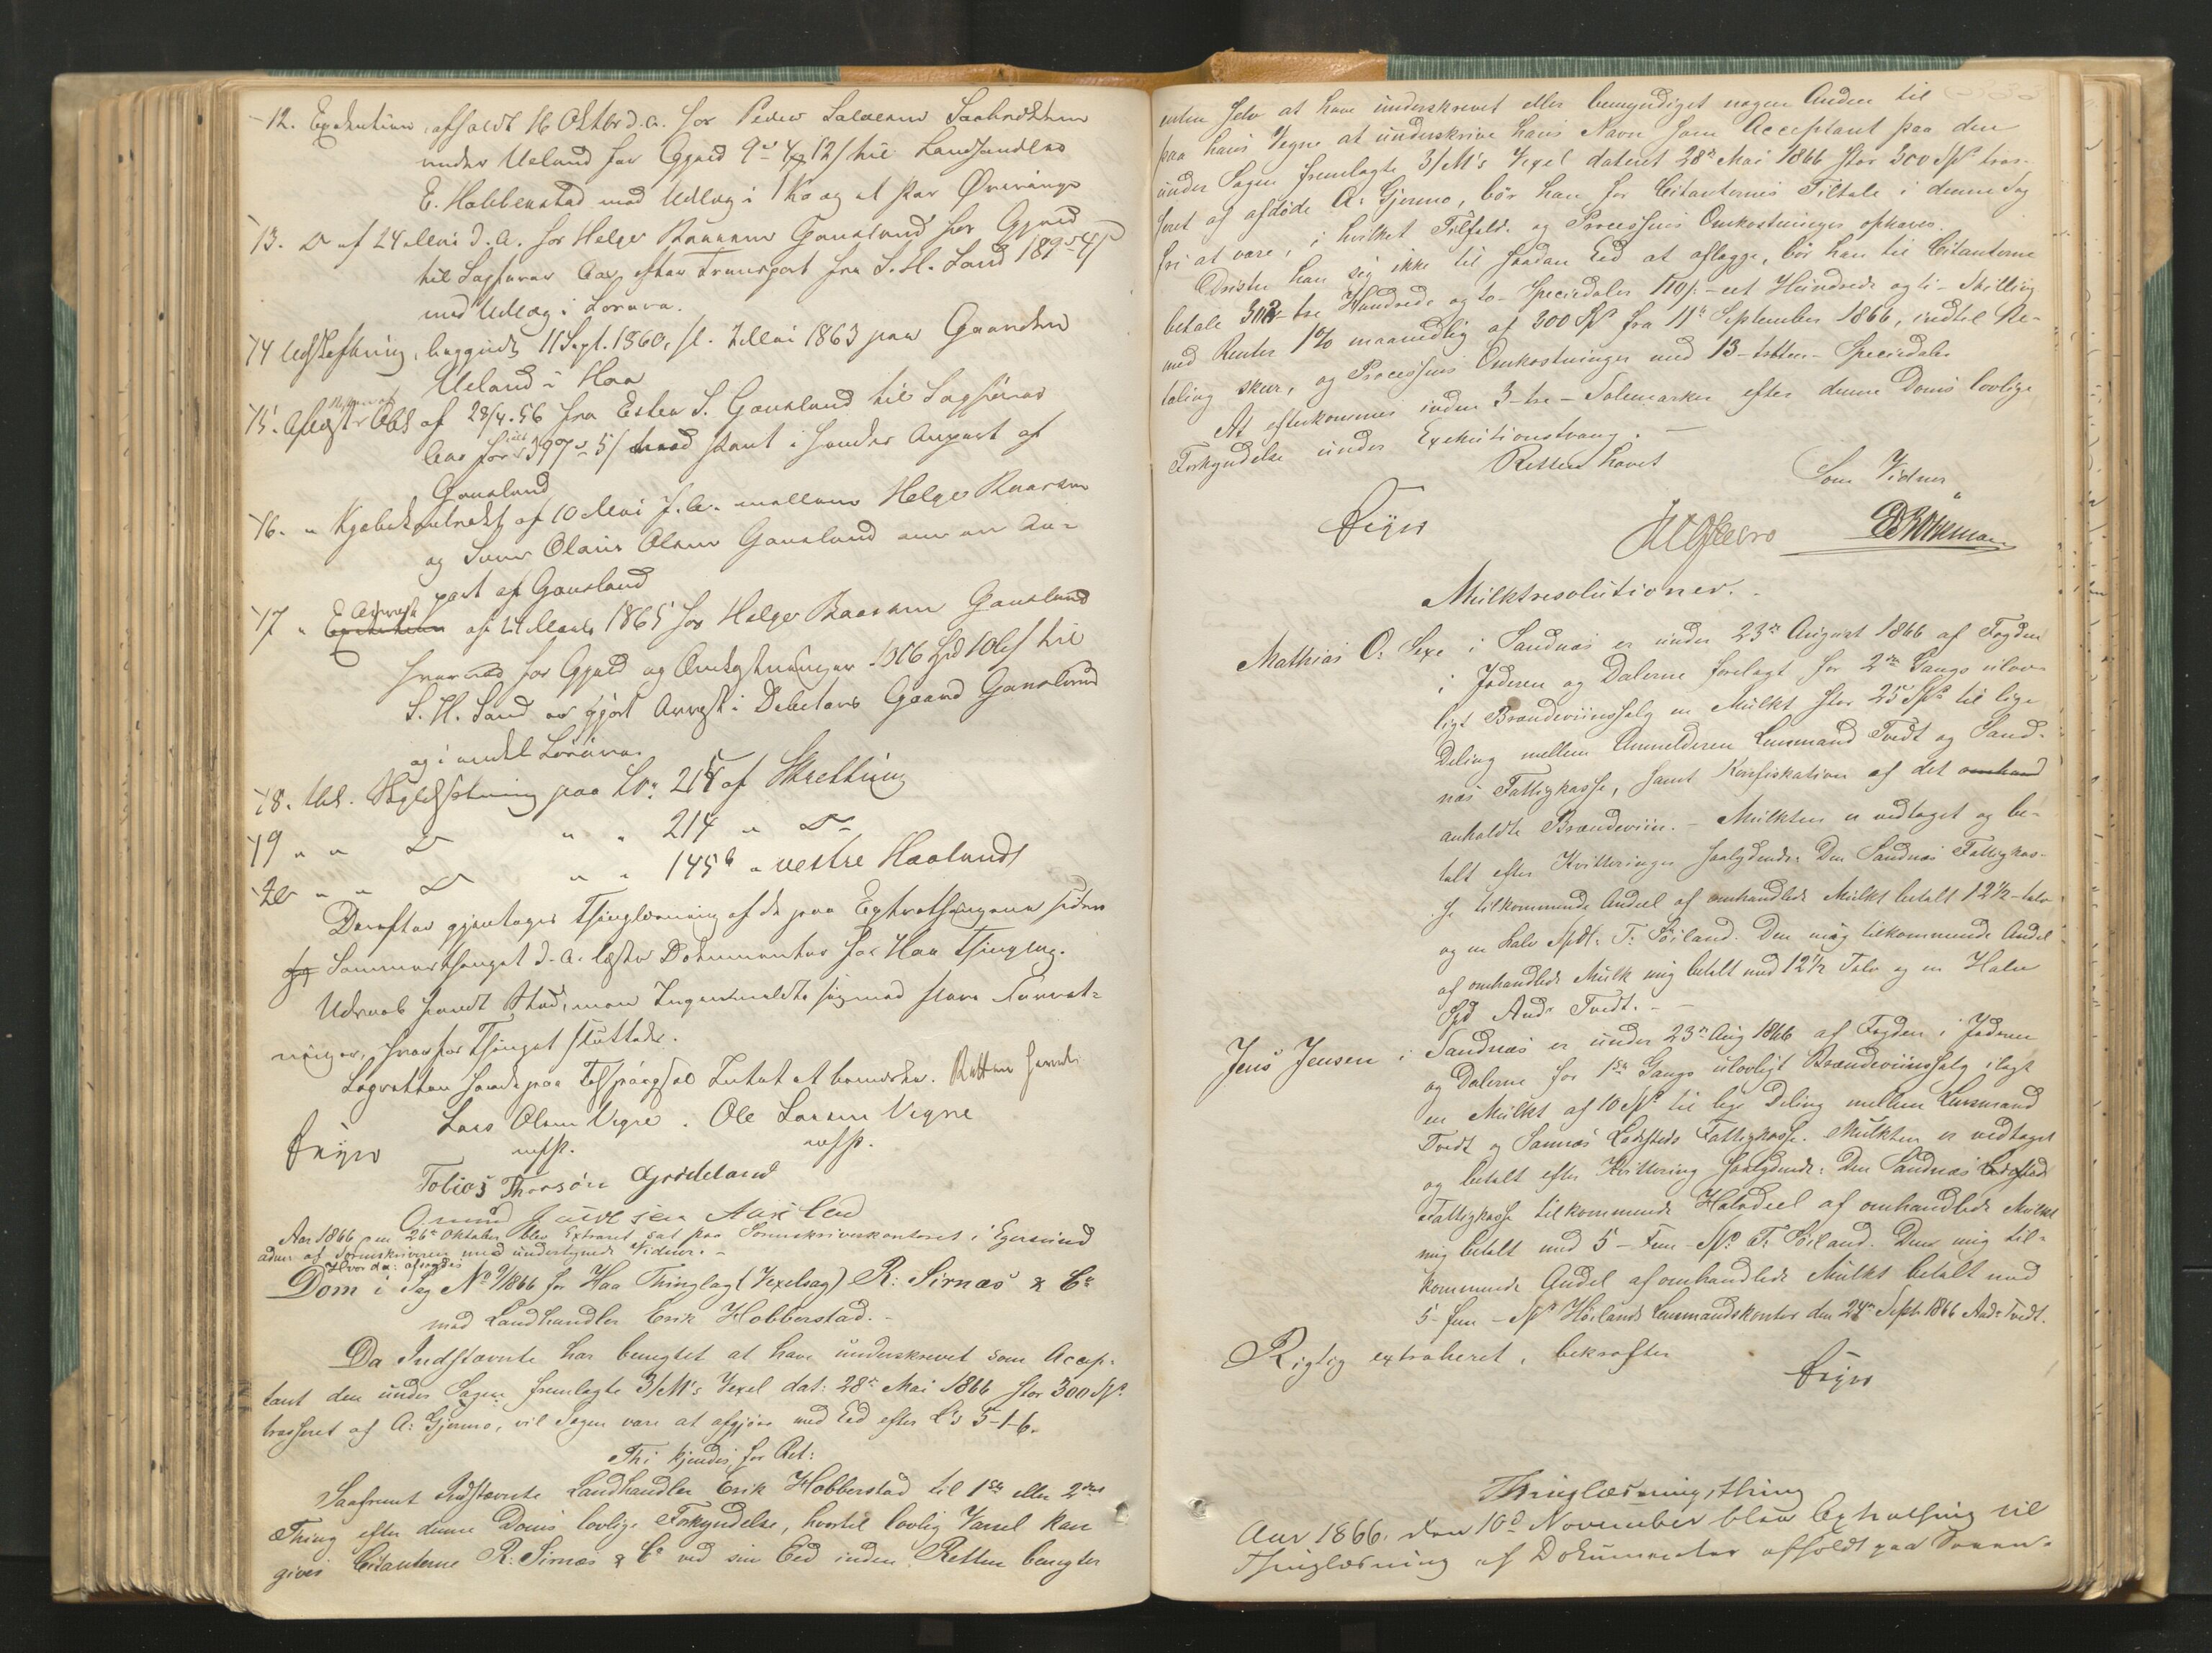 12. Execution, afholdt 16 Oktbr d.a. hos Peder Salvesen
under Ueland for Gjæld 9 12/ til Landhandler
E. Hobberstad med Udlæg i 1 Ko og et Par
13. Do af 24 Mai d.A. hos Helge Gausland for Gjæld
til Sagfører Aas efter Transport fra S. H. Sand 189
med Udlæg i Løsøre.
14 Udskiftning, begyndt 11 Sept. 1860, sl. 7 Mai 1863 paa Gaarden
Ueland i Haa
15. Aflæst Obl af 28/4.56 fra Esten S. Gausland til Sagfører
Aas for 397 5/ med Pant i Anpart af
Gausland
16. " Kjøbekontrakt af 10 Mai f.A. mellem Helge
og Olaus Olsen Gausland om en An-
part af Gausland
17 " Arrest af 24 Marts 1865 hos Helge Gausland
hvorved for Gjæld og Omkostninger 106 til
S. H. Sand er gjort Arrest i Debitors Gaard Gausland
og i endel Løsøre.
18. Skyldsætning paa Lo: 214 af Skretting
19 " " Do " " 214 " Do
20 " " Do " " 145b " vestre Haaland
Derefter gjentoges Thinglæsning af de paa Extrathingene siden
Sommerthinget d.A. læste Dokumenter for Haa Thinglag.
Udraab fandt Sted, men Ingen meldte sig med flere Forret-
ninger, hvorfor Thinget sluttedes.
Lagretten havde paa Tilspørgsel Intet at bemærke. Retten hævet
Feyer Lars Olsen Vigre . Ole Larsen Vigre
Tobias Thorsøn Grødeland
Aar 1866 den 26de Oktober blev Extraret sat paa Sorenskriverkontoret i Egersund
af Sorenskriveren med undertegnede Vidner. -
Hvor da: afsagdes
Dom i Sag No 9/1866 for Haa Thinglag (Vexelsag) R: Sirnæs & Co
mod Landhandler Erik Hobberstad. -
Da Indstævnte har benegtet at have underskrevet som Accep-
tant den under Sagen fremlagte 3/M's Vexel dat: 28de Mai 1866 stor 300 Spd
trasseret af A: Gjermo, vil Sagen være at afgjøre med Eed efter L's 5-1-6.
Thi kjendes for Ret:
Saafremt Indstævnte Landhandler Erik Hobberstad til 1ste eller 2det
Thing efter denne Doms lovlige Forkyndelse, hvortil lovlig Varsel kan
gives Citanterne R: Sirnæs & Co ved sin Eed inden Retten benegter
enten selv at have underskrevet eller bemyndiget nogen Anden til
paa hans Vegne at underskrive hans Navn som Acceptant paa den
under Sagen fremlagte 3/M's Vexel dateret 28de Mai 1866 stor 300 Spd tras-
seret af afdøde A: Gjermo, bør han for Citanternes Tiltale i denne Sag
fri at være, i hvilket Tilfælde og Processens Omkostninger ophæves.
Drister han sig ikke til saadan Eed at aflægge, bør han til Citanterne
betale 302 - tre Hundrede og to - Speciedaler 110/: - eet Hundrede og ti - Skilling
med Renter 1% maanedlig af 300 Spd fra 11te September 1866, indtil Be-
taling skeer, og Processens Omkostninger med 13 - tretten - Speciedaler
At efterkommes inden 3 - tre - Solemærker efter denne Doms lovlige
Forkyndelse under Exekutionstvang. -
Retten hævet
Som Vidner
Feyer
Mulktresolutioner. -
Mathias O: Sexe i Sandnæs er under 23de August 1866 af Fogden
i Jæderen og Dalerne forelagt for 2den Gangs ulov-
ligt Brændeviinssalg en Mulkt stor 25 Spd til lige
Deling mellem Anmelderen Lensmand Tvedt og Sand-
næs Fattigkasse, samt Konfiskation af det omhand
anholdte Brændeviin. - Mulkten er vedtaget og be-
talt efter Kvitteringer saalydende: Den Sandnæs Fattigkas-
se tilkommende Andeel af omhandlede Mulkt betalt 12½ - tolv
og en halv Spdl: T: Søiland. Den mig tilkommende Andel
af omhandlede Mulk mig betalt med 12½ Tolv og en Halv
Spd Ands Tvedt. -
Jens Jensen i Sandnæs er under 23de Aug 1866 af Fogden i Jæderen
og Dalerne for 1ste Gangs ulovligt Brændeviinssalg ilagt
en Mulkt af 10 Spd til lige Deling mellem Lensmand
Tvedt og Sannæs Ladesteds Fattigkasse. Mulkten er vedtaget
og betalt efter Kvittering saalydende: Den Sandnæs Ladested
Fattigkasse tilkommende Halvdeel af omhandlede Mulkt
mig betalt med 5 - Fem - Spd T: Søiland. Den mig til-
kommende Andel af omhandlede Mulkt betalt med
5 - fem - Spd Høilands Lensmandskontor den 24de Sept 1866 Ands Tvedt.
Rigtig extraheret, bekræfter
Feyer
Thinglæsningsthing
Aar 1866. den 10d November blev Extrathing til
Thinglæsning af Dokumenter afholdt paa Soren-